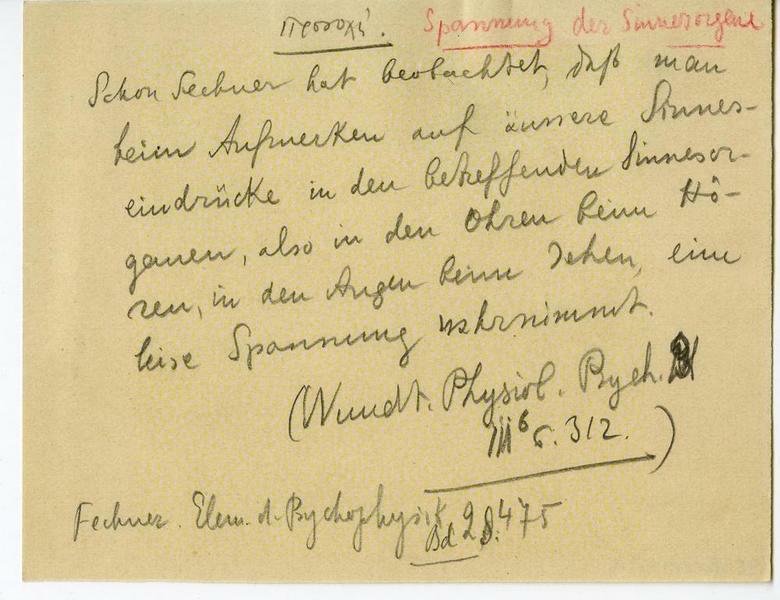 προσοχή. Spannung der Sinnesorgane
Schon Fechner hat beobachtet, daß man
beim Aufmerken auf äussere Sinnes-
eindrücke in den betreffenden Sinnesor-
ganen, also in den Ohren beim Hö-
ren, in den Augen beim Sehen, eine
leise Spannung wahrnimmt.
(Wundt. Physiol. Psych.
III⁶ σ. 312.)
Fechner. Elem. d. Psychophysik
Bd. 2 S. 475